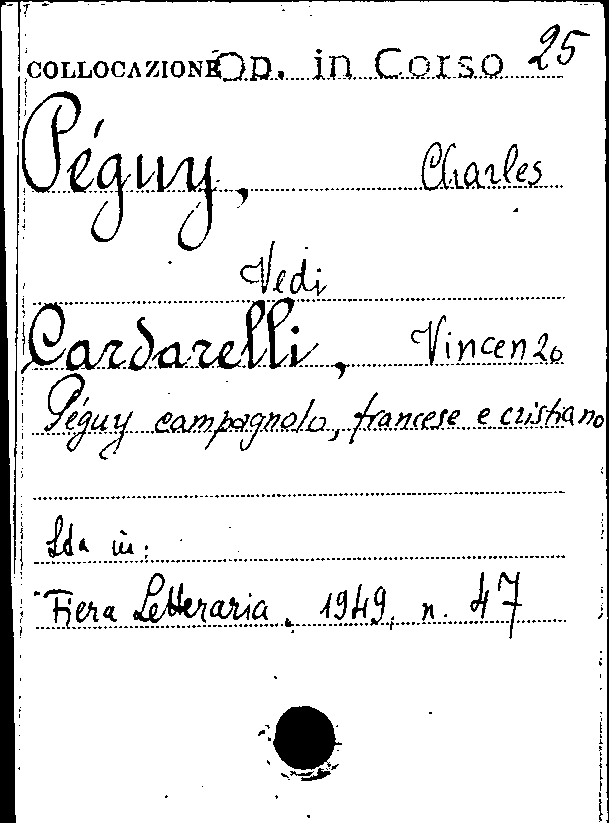 COLLOCAZIONE Op. in Corso 25
Péguy, Charles
Vedi
Cardarelli, Vincenzo
Péguy campagnolo, francese e cristiano
Sta in:
Fiera Letteraria, 1949, n. 47